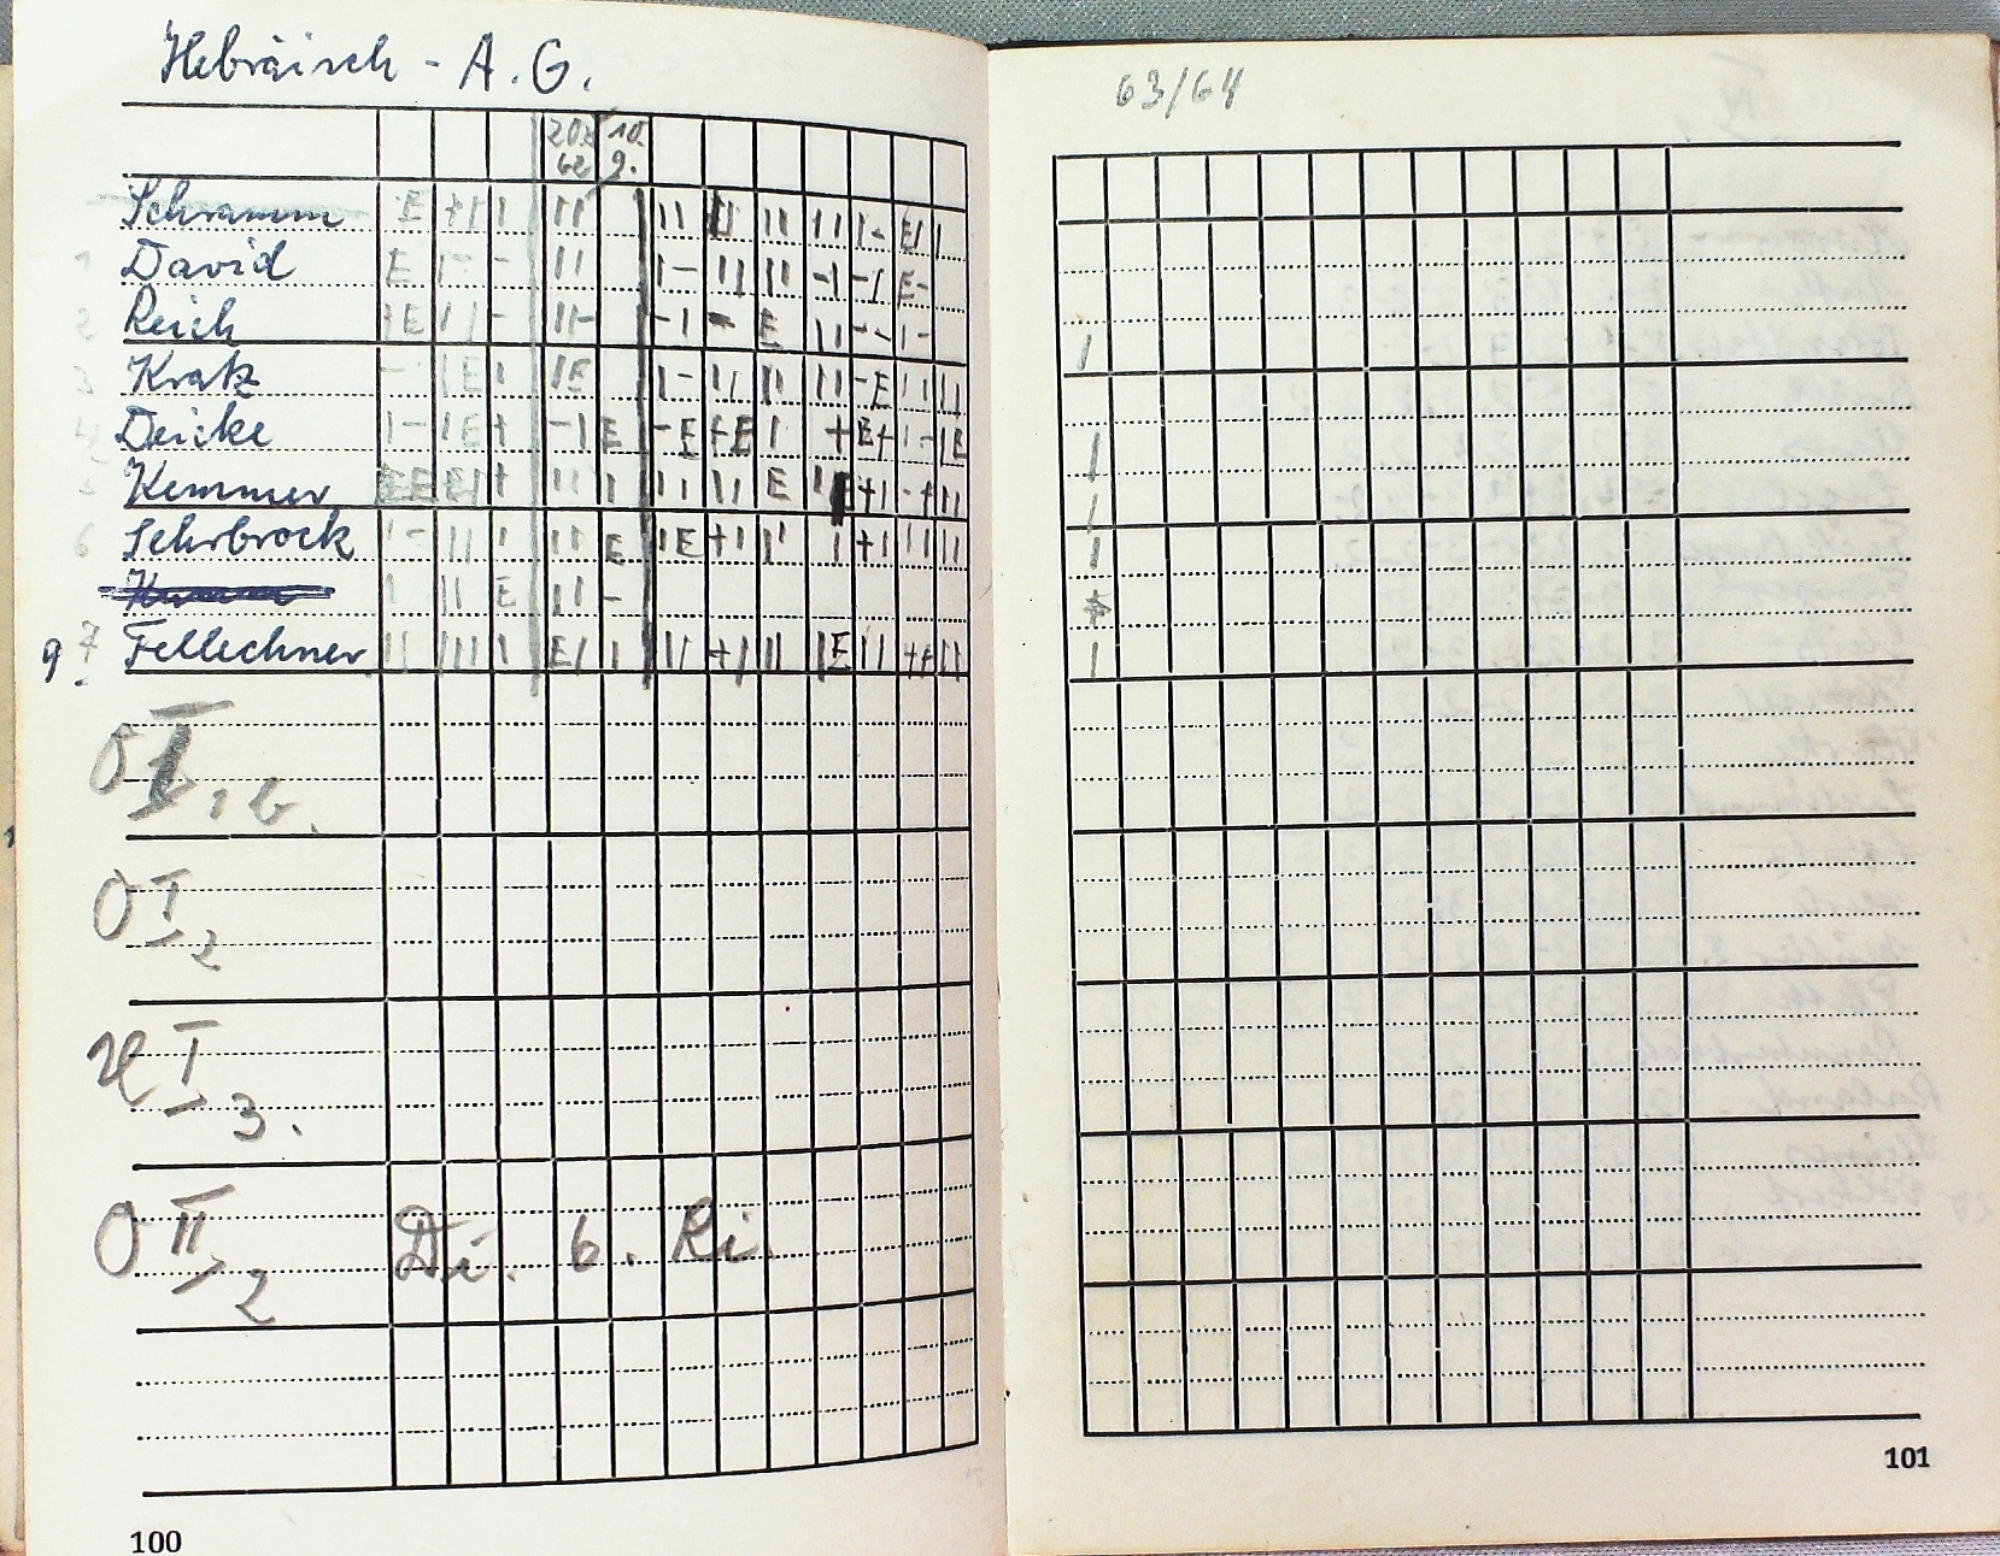 Hebräisch - A. G.
10.
9.
Schramm E +11 1 11 11 11 11 11 1- E1 1
1 David E 1- - 11 1- 11 11 -1 -1 E-
2 Reich 11- -1 - E 11 -- 1-
3 Kratz - 1E 1 1E 1- 11 11 11 -E 11 11
4 Deicke 1- 1E + -1 E -E +E 1 + E+ 1- 1E
Kemmer EE E1 + 11 1 11 11 E +1 -+ 11
6 Sehrbrock 1- 11 1 11 E 1E +1 11 1 +1 11 11
1 11 E 11 -
9 7 Fellechner 11 111 1 E1 1 11 +1 11 1E 11 ++ 11
O I, b.
O I 2
U I 3.
O II 2 Di. 6. Ri.
100
63/64
1
1
1
1
1
101